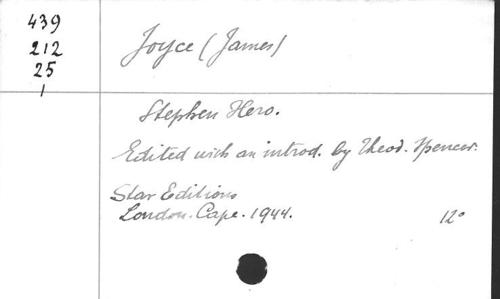 439
212
25
Joyce (James)
Stephen Hero.
Edited with an introd. by Theod. Spencer.
Star Editions
London. Cape. 1944.
12°